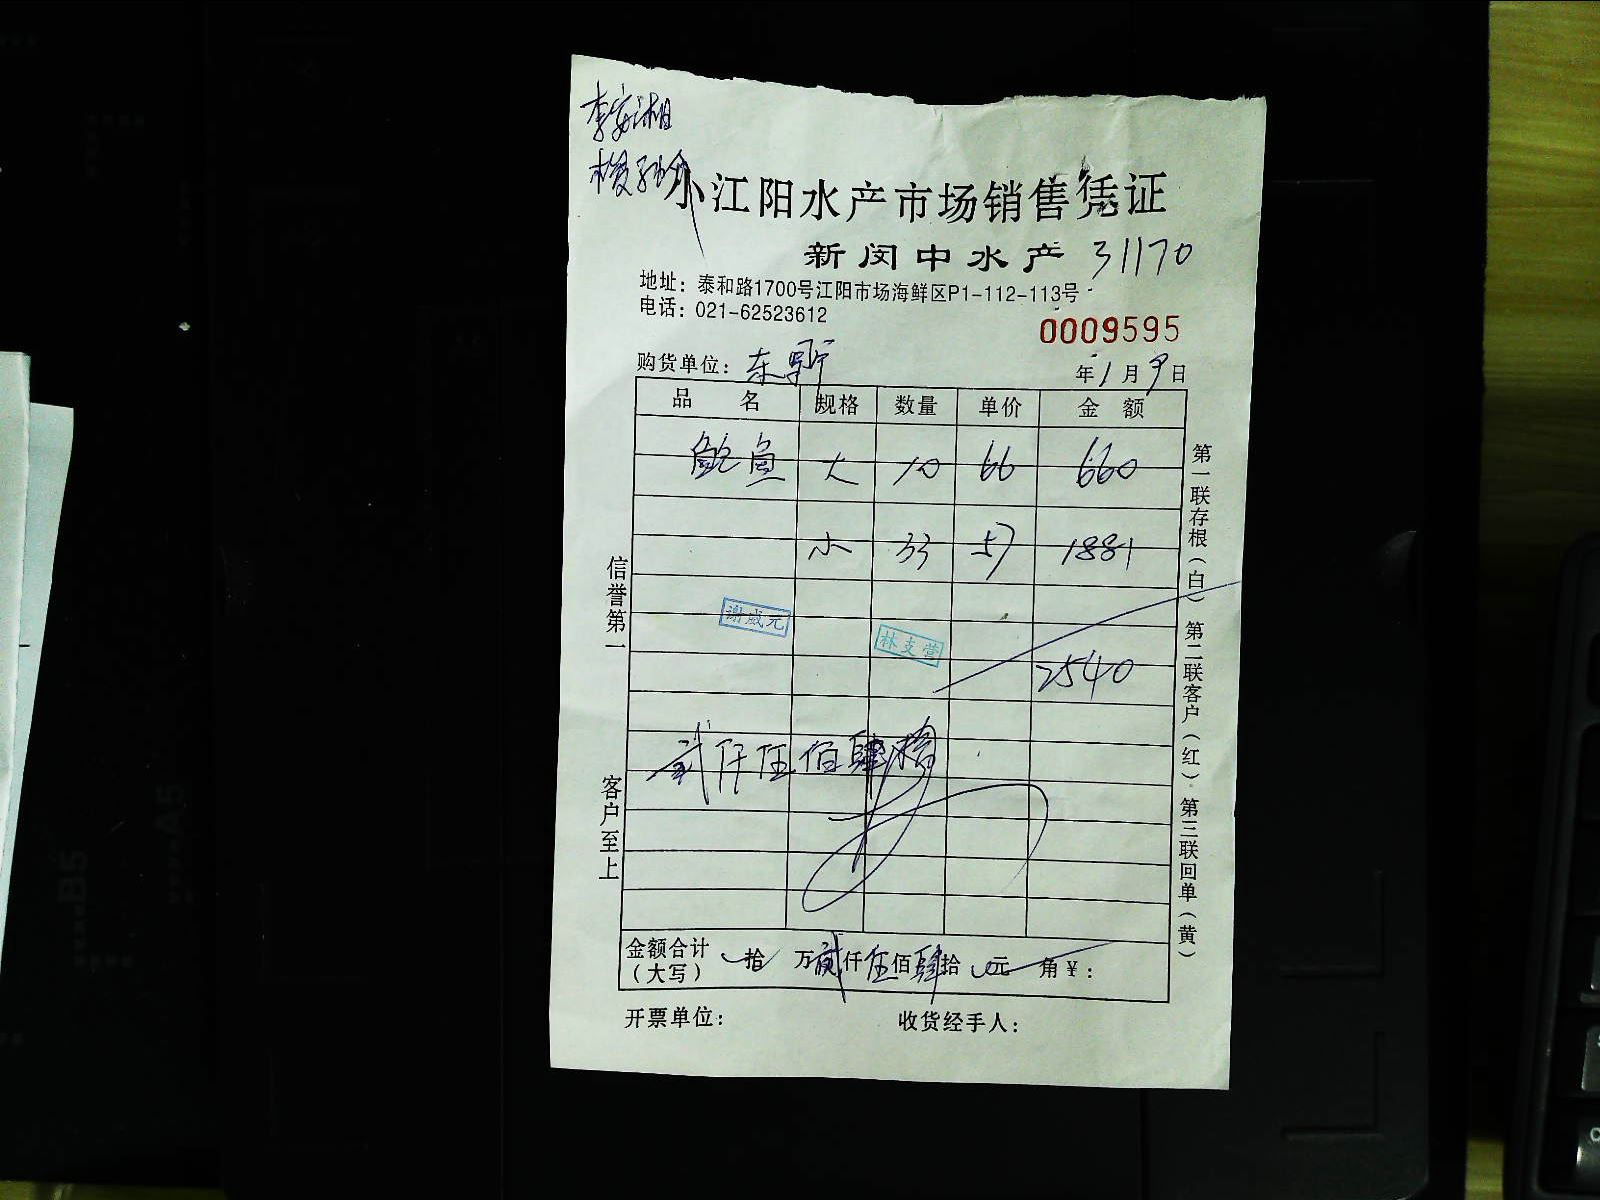 李安湘
小江阳水产市场销售凭证
新闵中水产 31170
地址：泰和路1700号江阳市场海鲜区P1-112-113号
电话：021-62523612
0009595
购货单位：东
年1月9日
品 名 规格 数量 单价 金 额
鲍鱼 大 10 66 660
小 33 57 1881
谢成元
林支营
2540
贰仟伍佰肆拾
信誉第一
客户至上
第一联存根（白）第二联客户（红）第三联回单（黄）
金额合计（大写） 拾 万贰仟伍佰肆拾0元 角￥：
开票单位： 收货经手人：
B5
A5